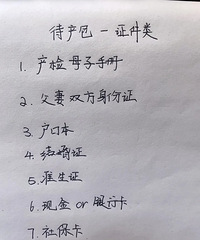 待产包 — 证件类
1. 产检 母子手册
2. 父妻 双方身份证
3. 户口本
4. 结婚证
5. 准生证
6. 现金 or 银行卡
7. 社保卡